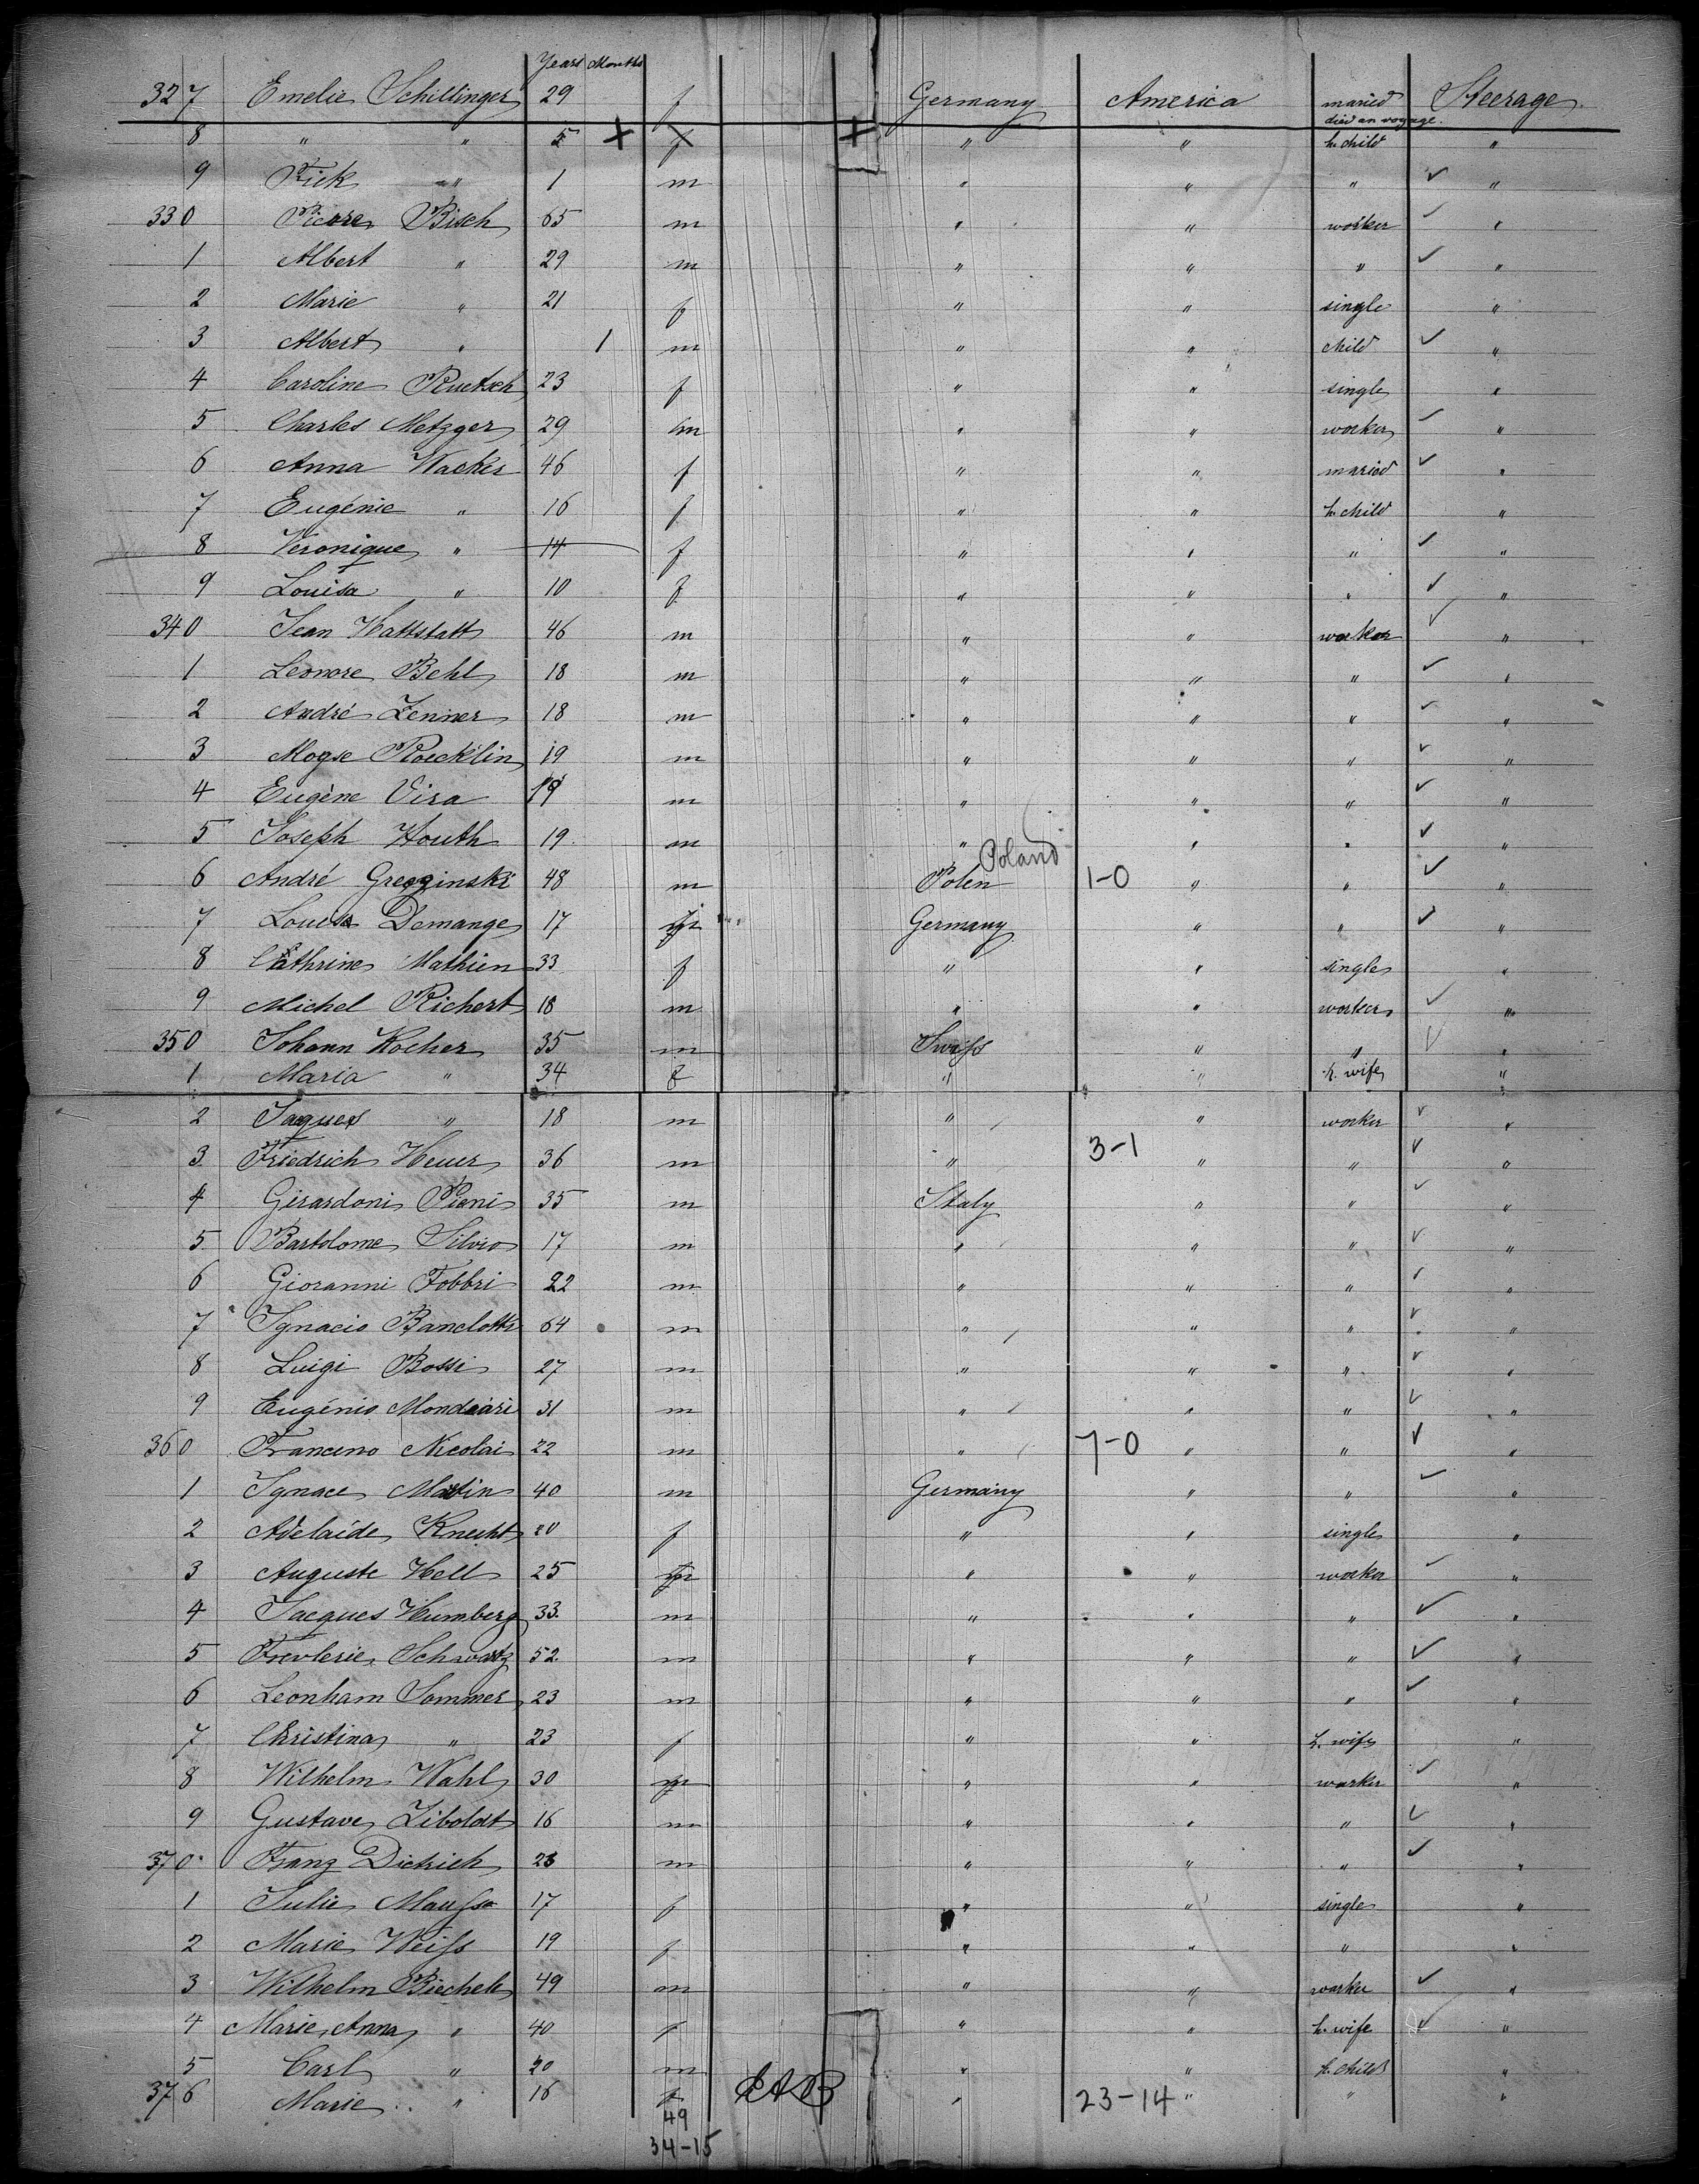 Years Months
327 Emelie Schillinger 29 f Germany America maried Steerage
died on voyage.
8 " " 5 X f X " " h. child "
9 Fick " 1 m " " " ✓ "
330 Picore Bisch 65 m " " worker ✓ "
1 Albert " 29 m " " " ✓ "
2 Marie " 21 f " " single "
3 Albert " 1 m " " child ✓ "
4 Caroline Ruetsch 23 f " " single "
5 Charles Metzger 29 m " " worker ✓ "
6 Anna Wacker 46 f " " maried ✓ "
7 Eugénie " 16 f " " h. child "
8 Veronique " 14 f " " " ✓ "
9 Louisa " 10 f " " " ✓ "
340 Jean Hattstatt 46 m " " worker ✓ "
1 Leonore Behl 18 m " " " ✓ "
2 André Zenner 18 m " " " ✓ "
3 Moyse Roecklin 19 m " " " ✓ "
4 Eugène Vira 19 m " " " ✓ "
5 Joseph Houth 19 m " " " ✓ "
Poland
6 André Greozinski 48 m Polen 1-0 " " ✓ "
7 Louisa Demange 17 Germany " " ✓ "
8 Cathrine Mathien 33 f " " single "
9 Michel Richert 18 m " " worker ✓ "
350 Johann Kocher 35 m Swiss " " ✓ "
1 Maria " 34 f " " h. wife "
2 Jaques " 18 m " " worker ✓ "
3 Friedrich Heuer 36 m " 3-1 " " ✓ "
4 Girardoni Pieni 35 m Italy " " ✓ "
5 Bartolome Silvio 17 m " " " ✓ "
6 Gioranni Fobbri 22 m " " " ✓ "
7 Ignacio Banclotti 64 m " " " ✓ "
8 Luigi Bossi 27 m " " " ✓ "
9 Eugénio Mondeari 31 m " " " ✓ "
360 Franceno Nicolai 22 m " 7-0 " " ✓ "
1 Ignace Martin 40 m Germany " " ✓ "
2 Adelaide Knecht 20 f " " single "
3 Auguste Hell 25 m " " worker ✓ "
4 Jacques Humberg 33 m " " " ✓ "
5 Schwartz 52 m " " " ✓ "
6 Leonham Sommer 23 m " " " ✓ "
7 Christina " 23 f " " h. wife "
8 Wilhelm Wahl 30 m " " worker ✓ "
9 Gustave Ziboldt 16 m " " " ✓ "
370 Franz Dietrich 23 m " " " ✓ "
1 Julie Mausse 17 f " " single "
2 Marie Weiss 19 f " " " "
3 Wilhelm Biechele 49 m " " worker ✓ "
4 Marie Anna " 40 f " " h. wife ✓ "
5 Carl " 20 m " " h. child "
376 Marie " 16 f EAB " 23-14 " " "
49
34-15